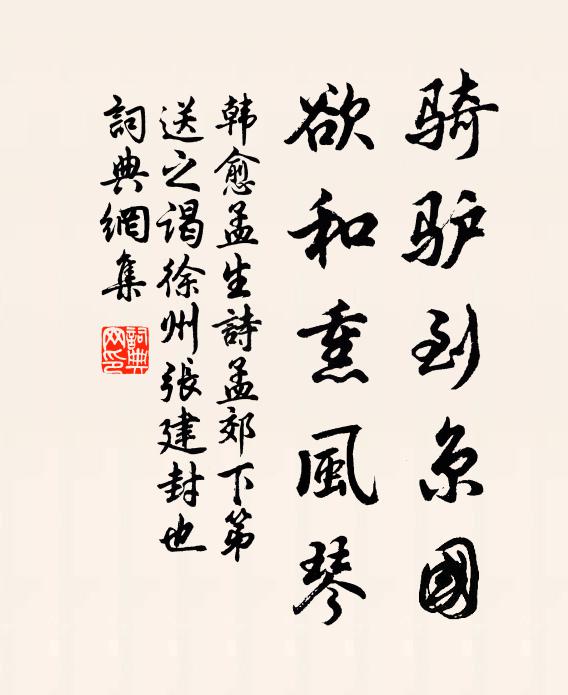 骑驴到京國
欲和熏風琴
韩愈孟生詩孟郊下第
送之谒徐州張建封也
詞典網集
詞典網印